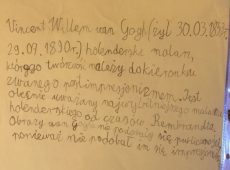 Vincent Willem van Gogh (żył 30.03.1853,
29.09.1890r.) holenderski malarz,
którego twórczość należy do kierunku
zwanego postimpresjonizmem. Jest
obecnie uważany najwybitniejszego malarza
holenderskiego od czasów Rembrandta.
Obrazy van Gogha nie podobały się publiczności
ponieważ nie podobał im się impresjonizm